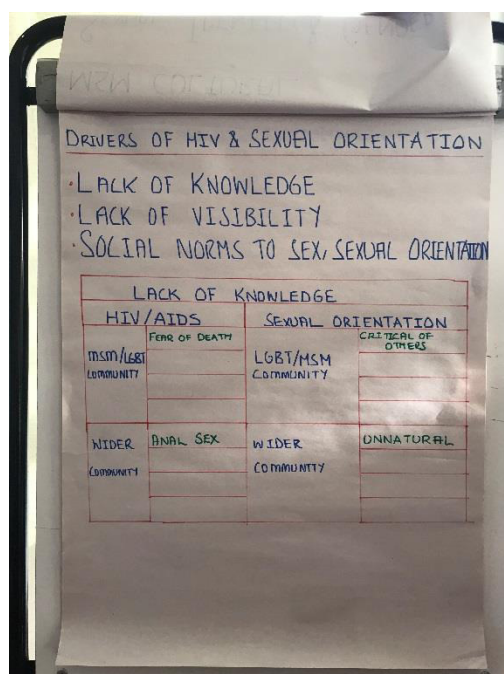 DRIVERS OF HIV & SEXUAL ORIENTATION
·LACK OF KNOWLEDGE
·LACK OF VISIBILITY
·SOCIAL NORMS TO SEX, SEXUAL ORIENTATION
LACK OF KNOWLEDGE
HIV/AIDS
SEXUAL ORIENTATION
MSM/LGBT
COMMUNITY
FEAR OF DEATH
LGBT/MSM
COMMUNITY
CRITICAL OF
OTHERS
WIDER
COMMUNITY
ANAL SEX
WIDER
COMMUNITY
UNNATURAL